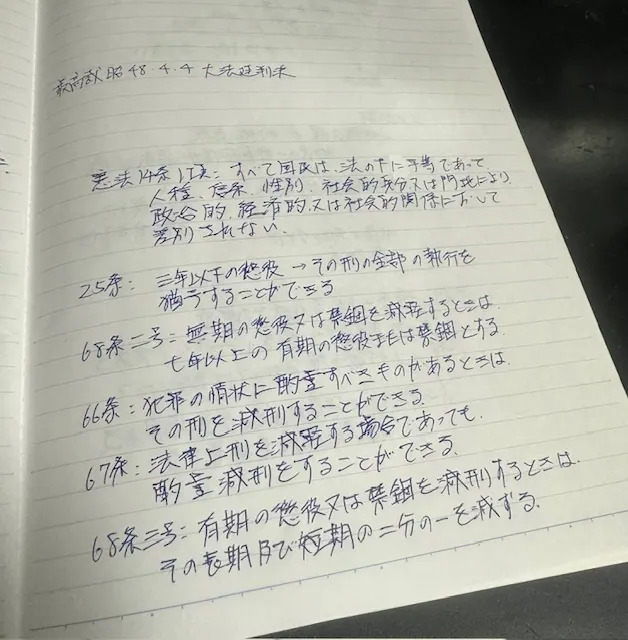 最高裁 昭48.4.4 大法廷判決
憲法14条1項：すべて国民は、法の下に平等であって
人種、信条、性別、社会的身分又は門地により、
政治的、経済的、又は社会的関係において
差別されない。
25条：三年以下の懲役→その刑の全部の執行を
猶予することができる
68条二号：無期の懲役又は禁錮を減軽するときは
七年以上の有期の懲役または禁錮とする。
66条：犯罪の情状に酌量すべきものがあるときは、
その刑を減刑することができる。
67条：法律上刑を減軽する場合であっても、
酌量減刑をすることができる。
68条三号：有期の懲役又は禁錮を減刑するときは、
その長期及び短期の二分の一を減ずる。